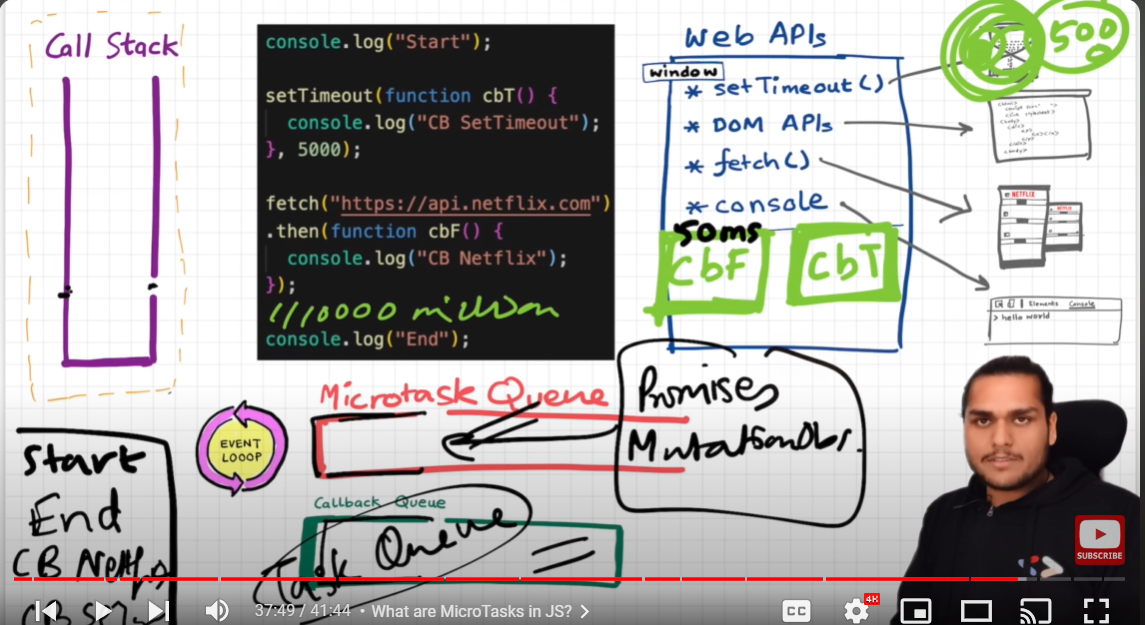 Call Stack
console.log("Start");
setTimeout(function cbT() {
console.log("CB SetTimeout");
}, 5000);
fetch("https://api.netflix.com")
.then(function cbF() {
console.log("CB Netflix");
});
million
console.log("End");
Web APIs
window
* setTimeout()
* DOM APIs
* fetch()
* console
500
50ms
CbF
CbT
NETFLIX
Elements Console
> hello world
Microtask Queue
Promises
MutationObs.
EVENT
LOOOP
Callback Queue
Task Queue
Start
End
CB
SUBSCRIBE
37:49 / 41:44 • What are MicroTasks in JS? >
CC
4K